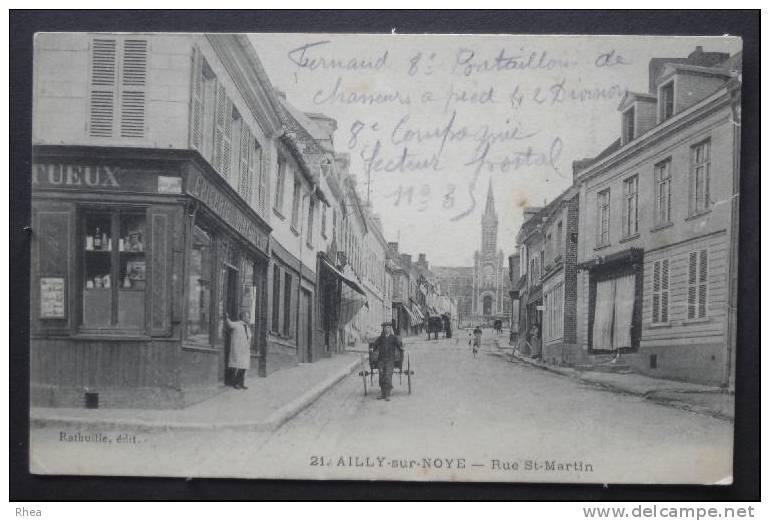 Fernand 8e Bataillon de
chasseurs a pied 42 Division
8e Compagnie
Secteur postal
No 3
TUEUX
Rathuille, édit.
21. AILLY-sur-NOYE — Rue St-Martin
Rhea
www.delcampe.net